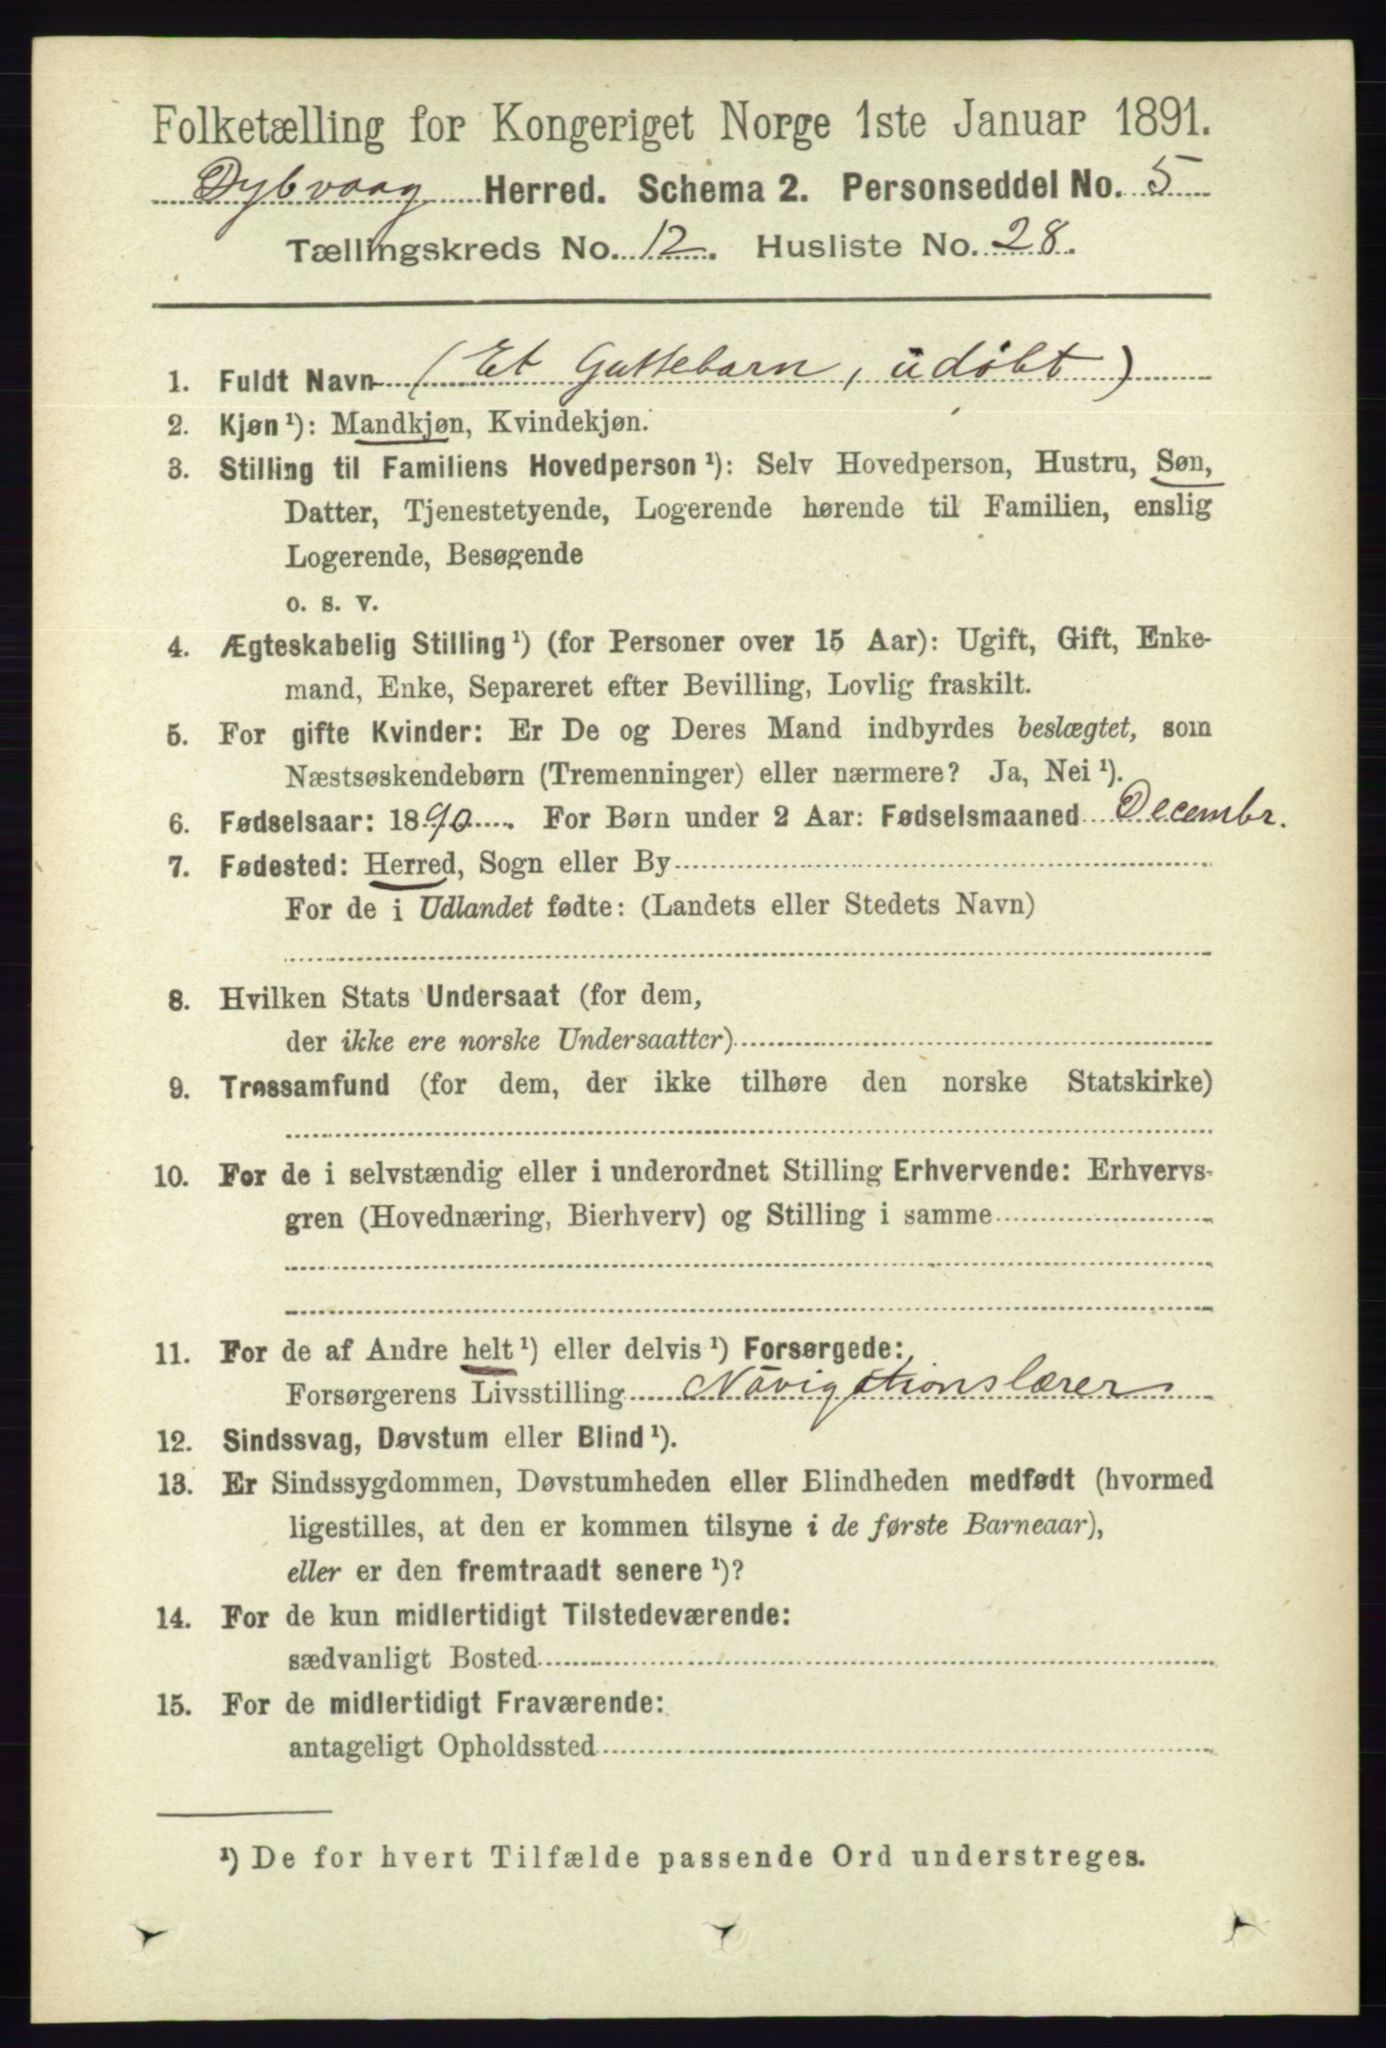 Folketælling for Kongeriget Norge 1ste Januar 1891.
Dybvaag Herred. Schema 2. Personseddel No. 5
Tællingskreds No. 12. Husliste No. 28.
1. Fuldt Navn (Et Guttebarn, udøbt)
2. Kjøn¹): Mandkjøn, Kvindekjøn.
3. Stilling til Familiens Hovedperson¹): Selv Hovedperson, Hustru, Søn,
Datter, Tjenestetyende, Logerende hørende til Familien, enslig
Logerende, Besøgende
o. s. v.
4. Ægteskabelig Stilling¹) (for Personer over 15 Aar): Ugift, Gift, Enke-
mand, Enke, Separeret efter Bevilling, Lovlig fraskilt.
5. For gifte Kvinder: Er De og Deres Mand indbyrdes beslægtet, som
Næstsøskendebørn (Tremenninger) eller nærmere? Ja, Nei¹).
6. Fødselsaar: 1890. For Børn under 2 Aar: Fødselsmaaned Decembr.
7. Fødested: Herred, Sogn eller By
For de i Udlandet fødte: (Landets eller Stedets Navn)
8. Hvilken Stats Undersaat (for dem,
der ikke ere norske Undersaatter)
9. Trossamfund (for dem, der ikke tilhøre den norske Statskirke)
10. For de i selvstændig eller i underordnet Stilling Erhvervende: Erhvervs-
gren (Hovednæring, Bierhverv) og Stilling i samme
11. For de af Andre helt¹) eller delvis¹) Forsørgede:
Forsørgerens Livsstilling Navigationslærer
12. Sindssvag, Døvstum eller Blind¹).
13. Er Sindssygdommen, Døvstumheden eller Blindheden medfødt (hvormed
ligestilles, at den er kommen tilsyne i de første Barneaar),
eller er den fremtraadt senere¹)?
14. For de kun midlertidigt Tilstedeværende:
sædvanligt Bosted
15. For de midlertidigt Fraværende:
antageligt Opholdssted
¹) De for hvert Tilfælde passende Ord understreges.